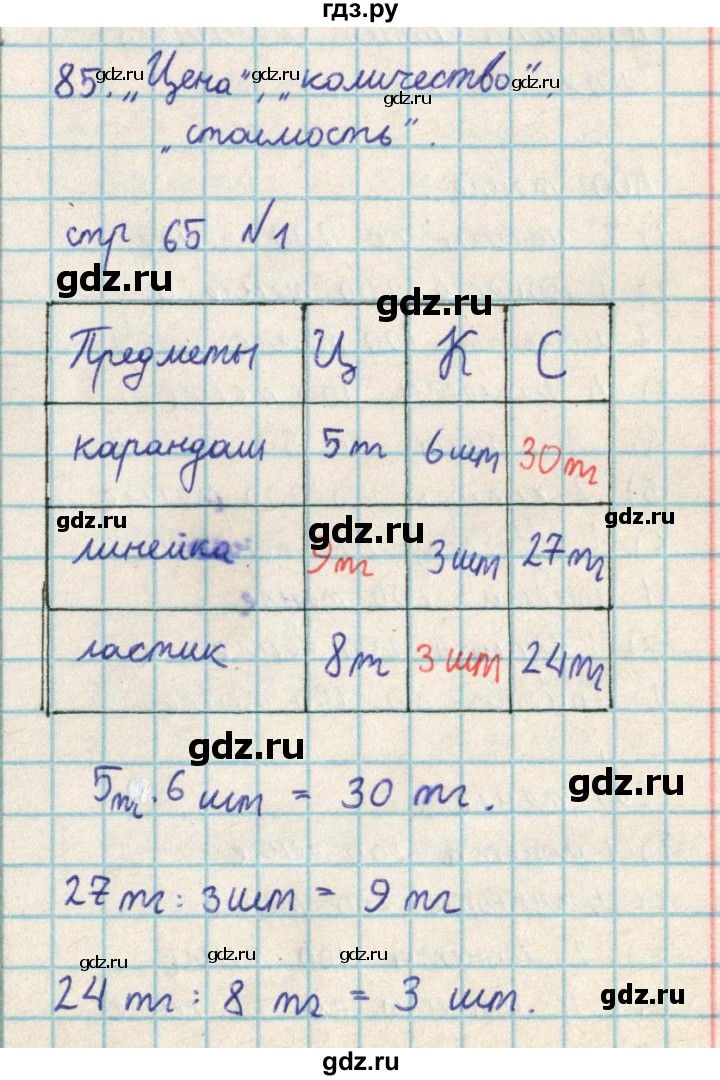 гдз.ру
85. „Цена", „количество",
gdz.ru gdz.ru gdz.ru
„стоимость".
стр 65 №1
gdz.ru gdz.ru
Предметы Ц К С
карандаш 5тг 6шт 30тг
gdz.ru gdz.ru gdz.ru
линейка 9тг 3шт 27тг
ластик 8тг 3шт 24тг
gdz.ru gdz.ru
5тг · 6 шт = 30 тг.
27тг : 3шт = 9 тг
gdz.ru gdz.ru gdz.ru
24 тг : 8 тг = 3 шт.
gdz.ru
gdz.ru